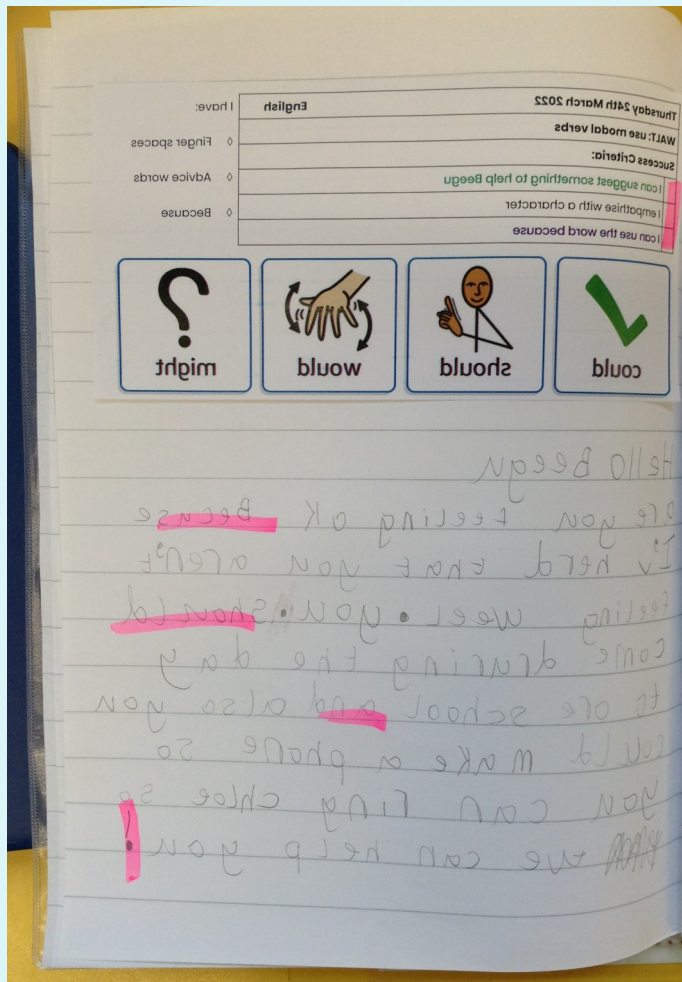 Thursday 24th March 2022 English
WALT: use modal verbs
Success Criteria:
I can suggest something to help Beegu
I empathise with a character
I can use the word because
I have:
◊ Finger spaces
◊ Advice words
◊ Because
could should would ? might
Hello Beegu
are you feeling ok Becuse
I'v herd that you aren't
feeling weel. you. should
come druring the day
to ore school and also you
could make a phone so
you can ring chloe so
we can help you!